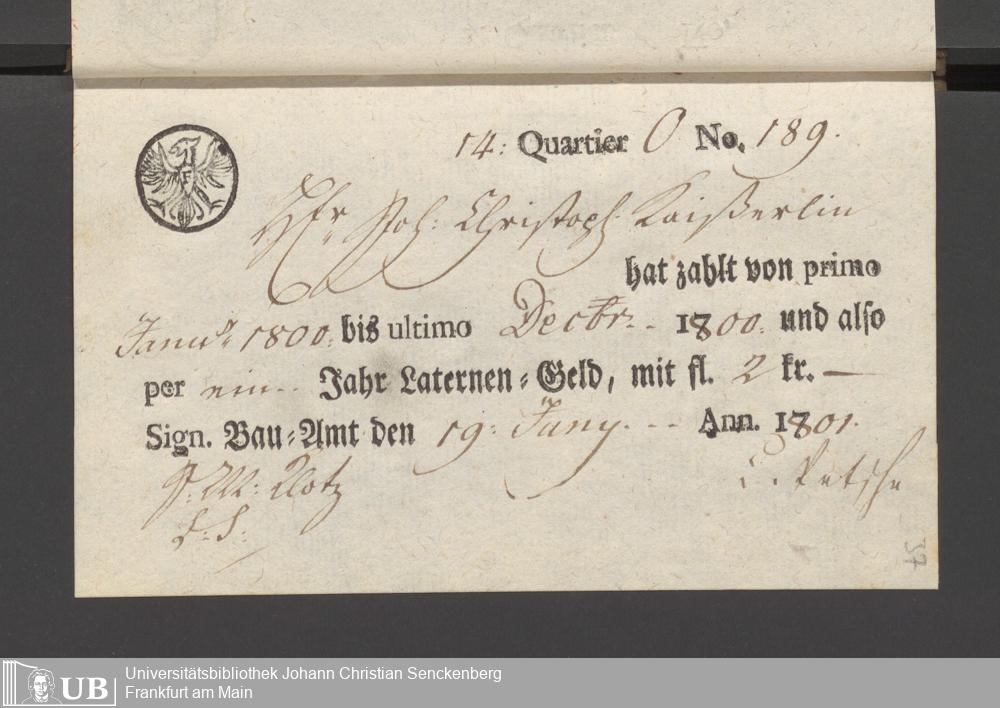 14: Quartier O No. 189.
F
Hr. Joh: Christoph Kaißerlin
hat zahlt von primo
Janu. 1800. bis ultimo Decbr. 1800. und also
per ein Jahr Laternen-Geld, mit fl. 2 kr. —
Sign. Bau-Amt den 19. Juny. Ann. 1801.
Klotz
C. Petsche
37
Universitätsbibliothek Johann Christian Senckenberg
UB Frankfurt am Main